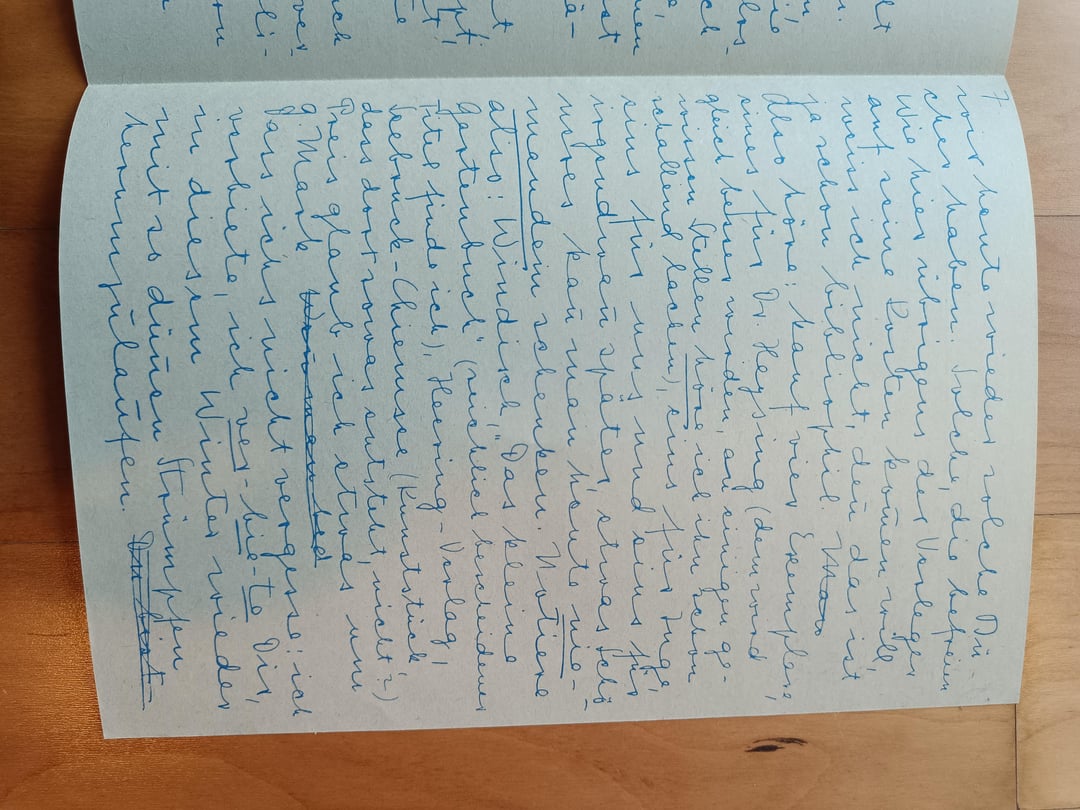 7
wir heute wieder solche Bü-
cher haben! Solche, die befreien
Wie hier übrigens der Verleger
auf seine Kosten kom̅en will,
weiss ich nicht, den̅ das ist
ja schon bibliophil.
Also höre: kauf vier Exemplare,
eines für Dr. Heysing (dem wird
gleich besser werden, an einigen ge-
wissen Stellen höre ich ihn schon
schallend lachen), eins für Inge,
eins für uns und eins für
irgendwen später, etwas Schö-
neres kan̅ man heute nie-
mandem schenken. Notiere
also: Windisch, "Das kleine
Gartenbuch" (wirklich bescheidener
Titel, finde ich), Heering-Verlag,
Seebruck-Chiemsee (Kunststück,
dass dort sowas entsteht, nicht?)
Preis glaub ich etwas um
9 Mark
Dass ichs nicht vergesse: ich
verbiete, ich ver-bie-te Dir,
in diesem Winter wieder
mit so dün̅en Strümpfen
herumzulaufen. Du hast